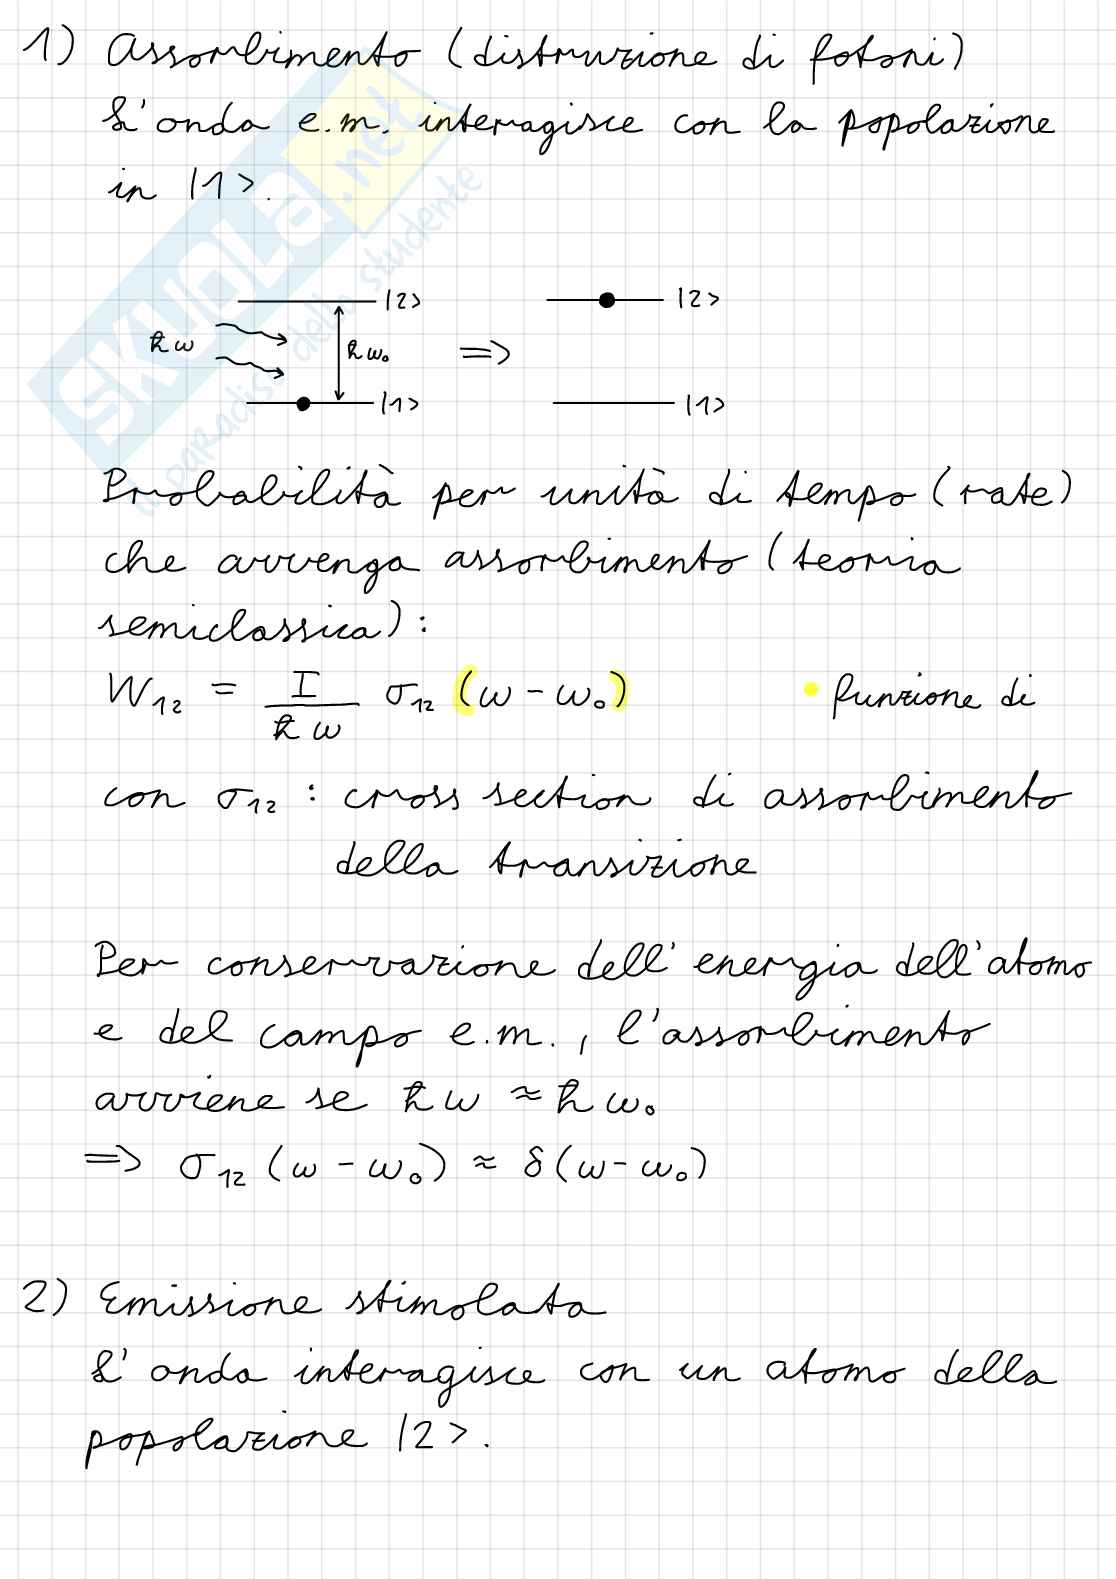 1) Assorbimento (distruzione di fotoni)
L'onda e.m. interagisce con la popolazione
in |1>.
SKUOLA.net
il paradiso dello studente
|2>
|2>
ħω
ħω₀
=>
|1>
|1>
Probabilità per unità di tempo (rate)
che avvenga assorbimento (teoria
semiclassica):
W₁₂ = I / ħω σ₁₂ (ω - ω₀) • funzione di
con σ₁₂ : cross section di assorbimento
della transizione
Per conservazione dell'energia dell'atomo
e del campo e.m., l'assorbimento
avviene se ħω ≈ ħω₀
=> σ₁₂ (ω - ω₀) ≈ δ(ω - ω₀)
2) Emissione stimolata
L'onda interagisce con un atomo della
popolazione |2>.